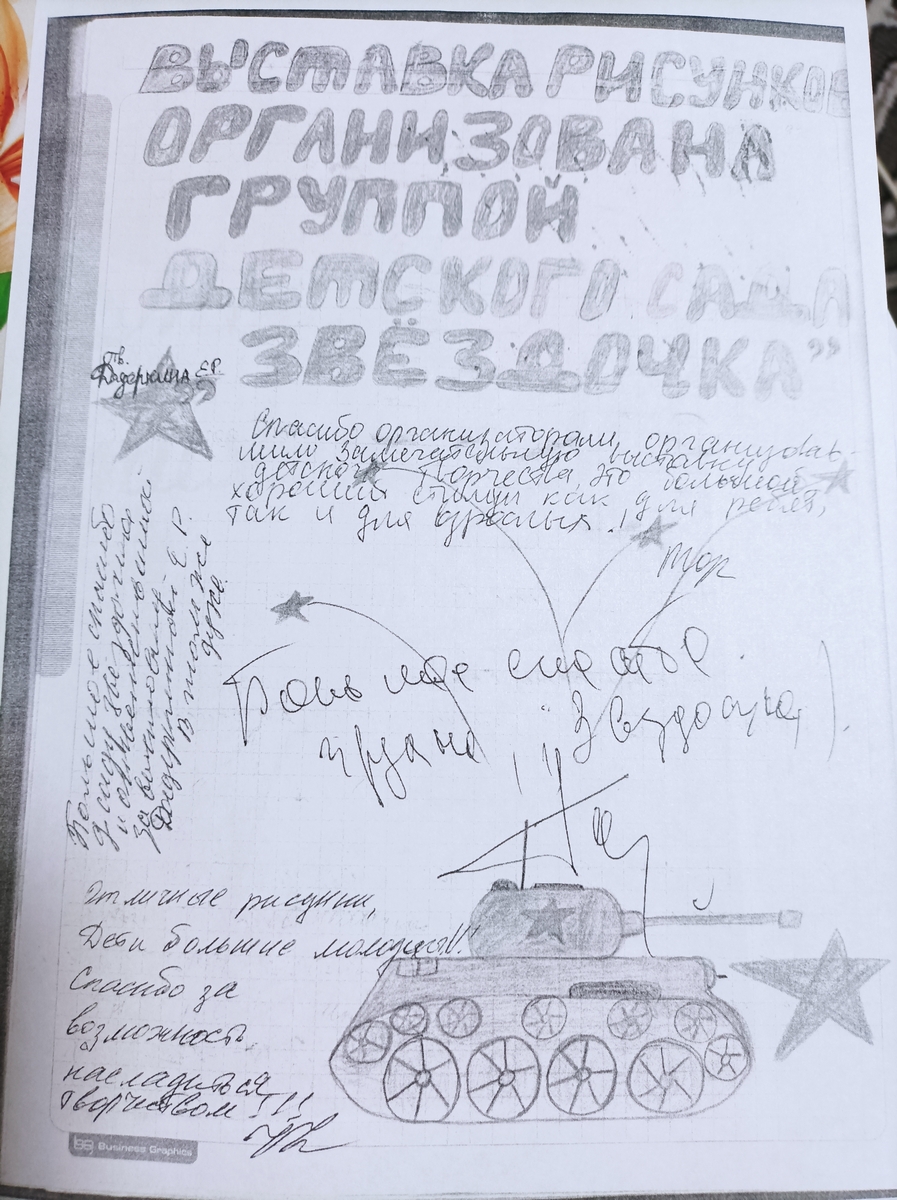 ВЫСТАВКА РИСУНКОВ
ОРГАНИЗОВАНА
ГРУППОЙ
ДЕТСКОГО САДА
ЗВЁЗДОЧКА”
Е.Р.
Спасибо организаторам, организовав-
шим замечательную выставку
детского творчества, это большой
хороший стимул как для ребят,
так и для взрослых!
Большое спасибо
д саду Звездочка
и
за
Е. Р.
В том же
духе.
Большое спасибо
"Звездочка
Отличные рисунки,
Дети большие молодцы!!!
Спасибо за
возможность
насладиться
творчеством!!!
BG Business Graphics